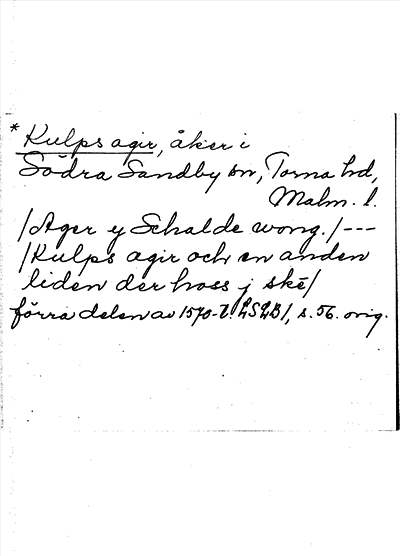 * Kulps agir, åker i
Södra Sandby sn, Torna hd,
Malm. l.
/Ager y Schalde wong./ ---
/Kulps agir och en anden
liden der hoss j skē/
förra delen av 1570-t. LSLB/, s. 56. orig.